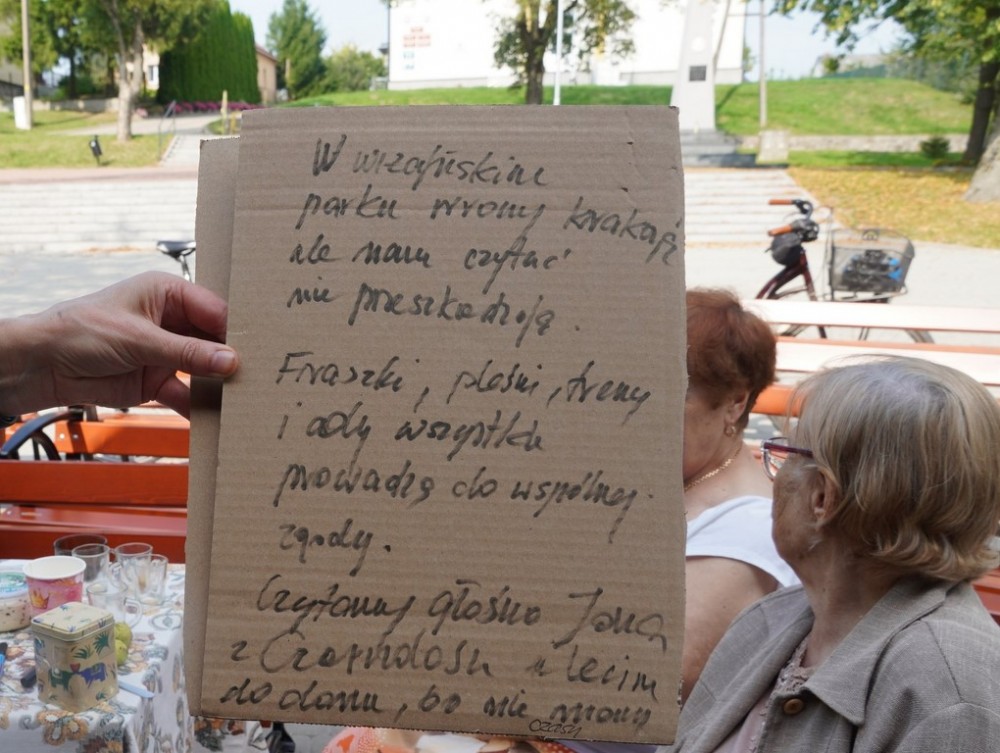 W wiżajńskim
parku wrony krakają
ale nam czytać
nie przeszkadzają.
Fraszki, pieśni, treny
i ody wszystkie
prowadzą do wspólnej
zgody.
Czytamy głośno Jana
z Czarnolasu i lecim
do domu, bo nie mamy
czasu